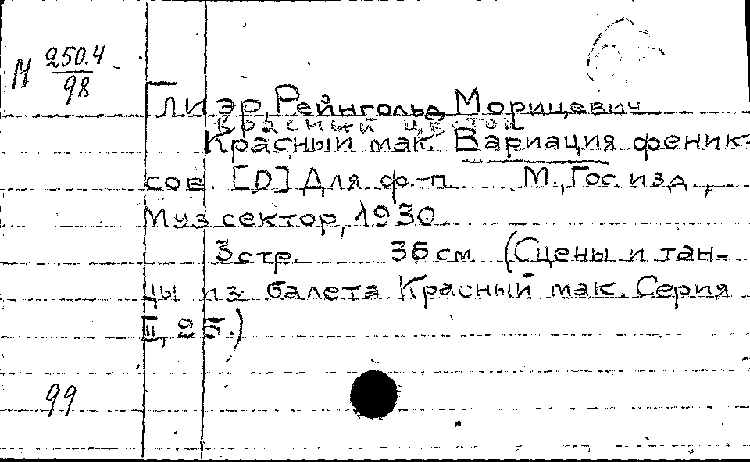 М 250.4
98
Глиэр, Рейнгольд Морицевич
Красный цветок
Красный мак. Вариация феник-
сов. [D] Для ф.-п. М., Гос. изд.,
Муз сектор, 1930
3 стр. 36 см (Сцены и тан-
цы из балета Красный мак. Серия
II, 25.)
99